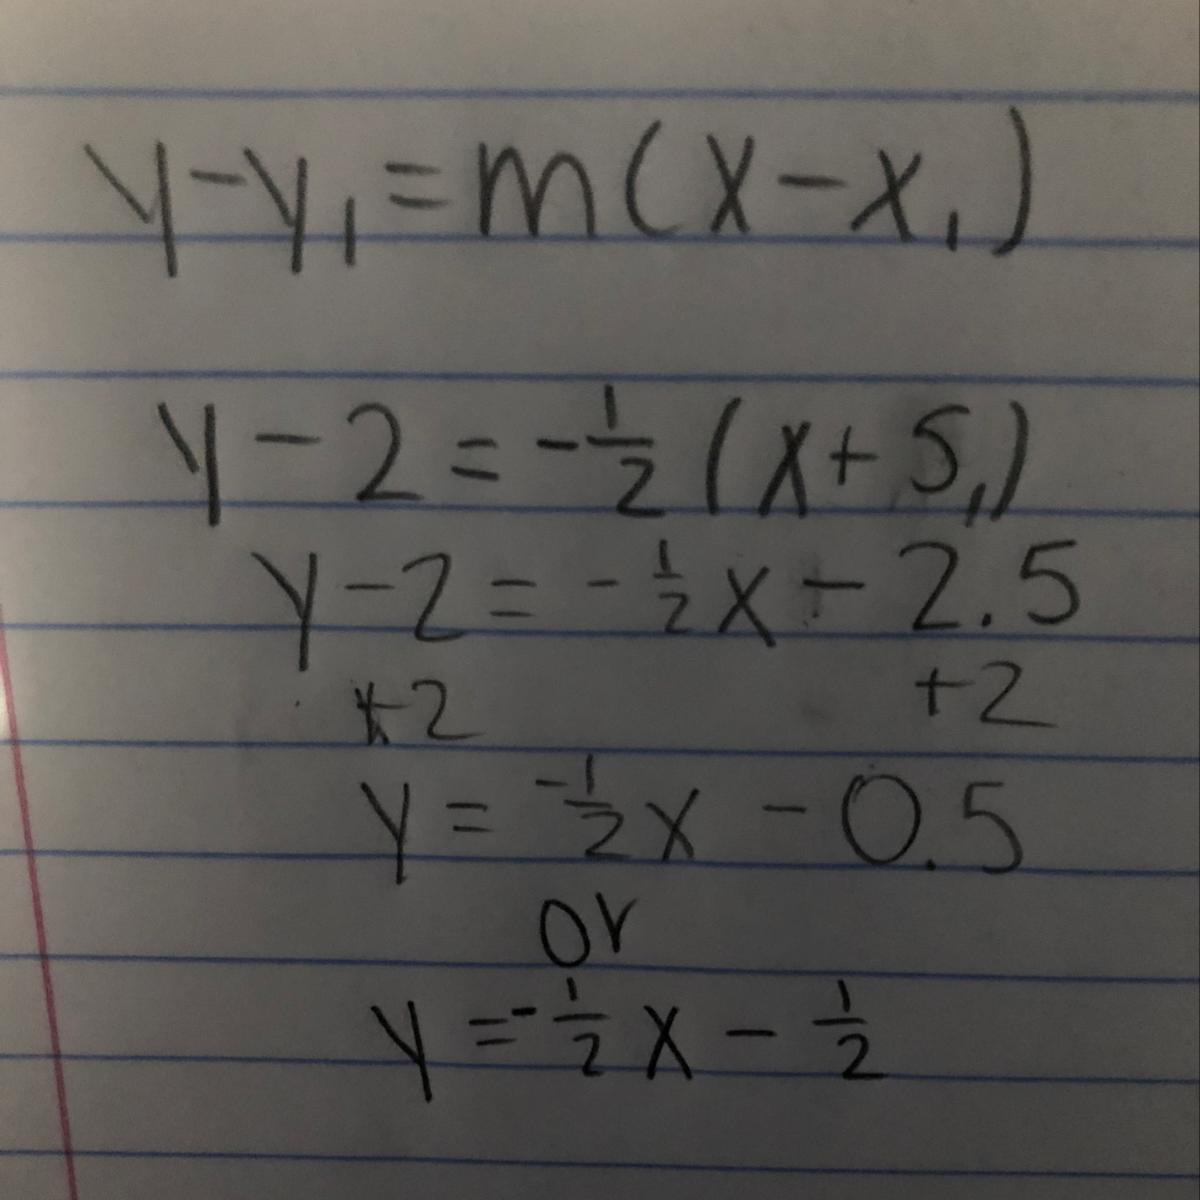 y-y₁=m(x-x₁)
y-2=-½(x+5,)
y-2=-½x-2.5
+2 +2
y=-½x-0.5
or
y=-½x-½